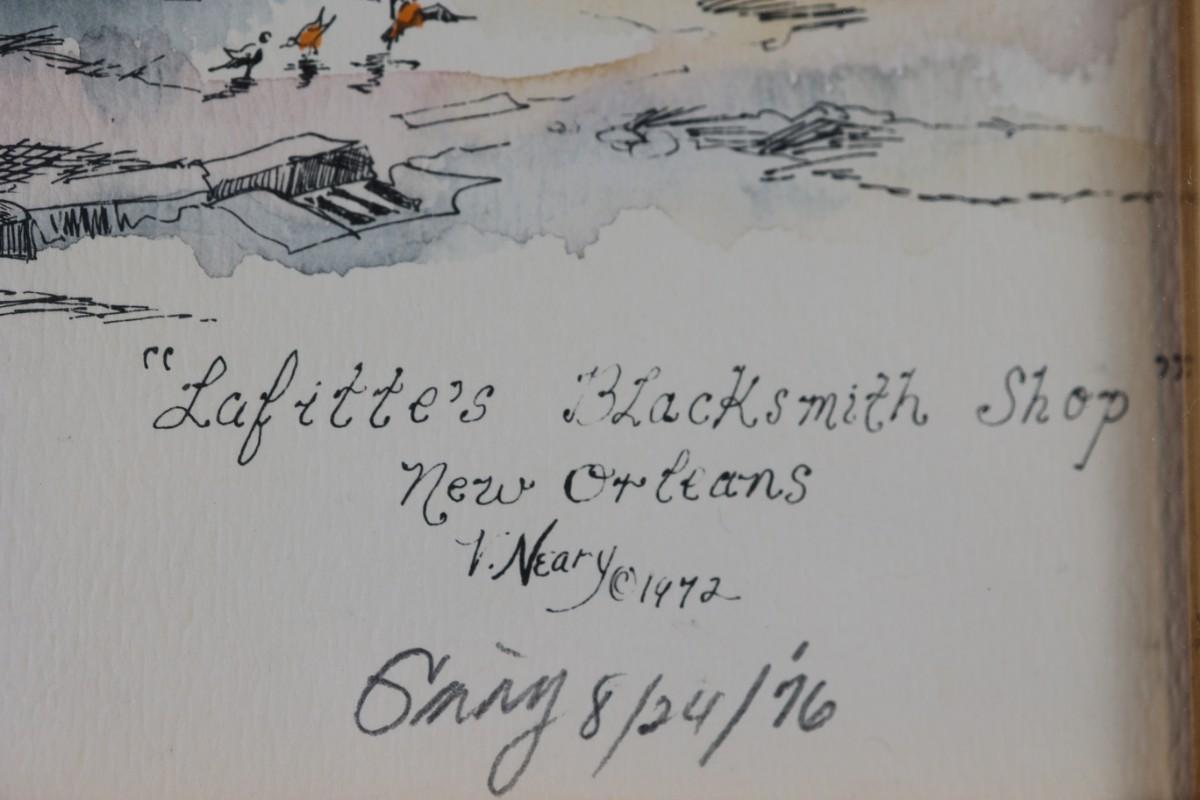 "Lafitte's Blacksmith Shop"
New Orleans
V. Neary © 1972
8/24/'76